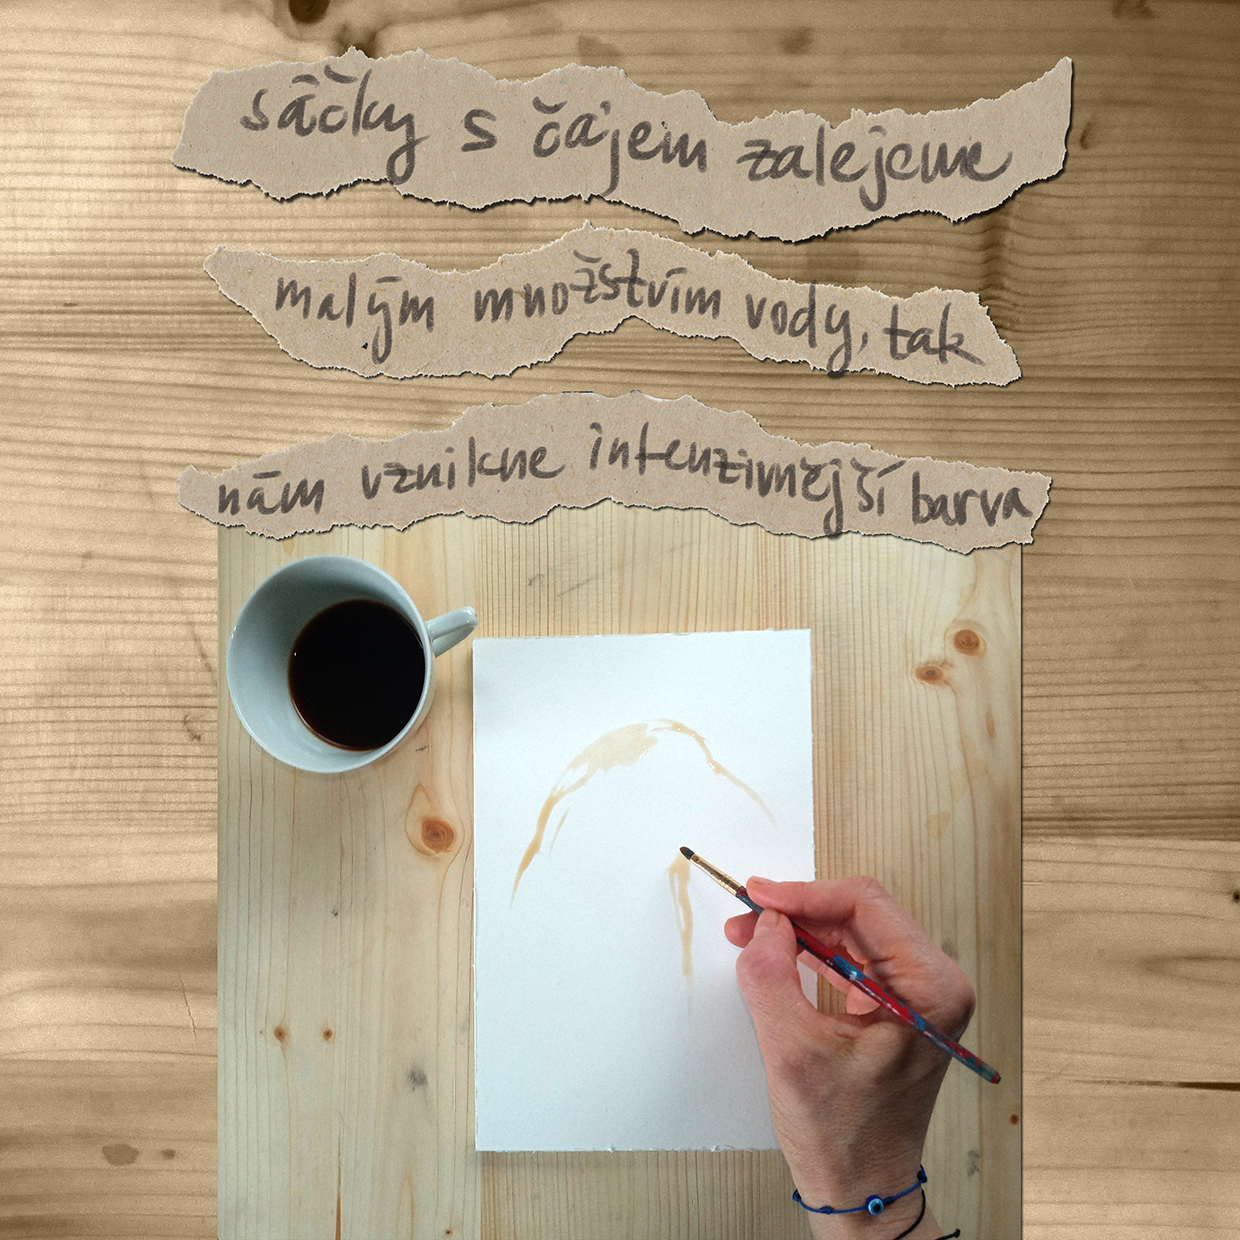 sáčky s čajem zalejeme
malým množstvím vody, tak
nám vznikne intenzivnější barva